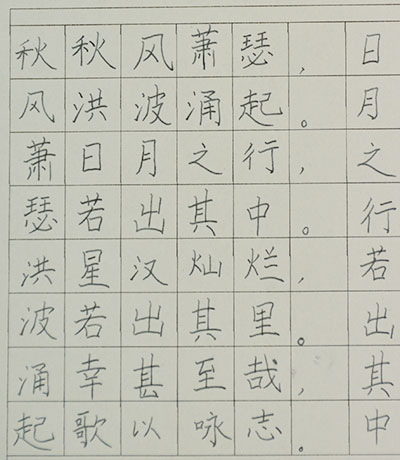 秋秋风萧瑟，日
风洪波涌起。月
萧日月之行，之
瑟若出其中。行
洪星汉灿烂，若
波若出其里。出
涌幸甚至哉，其
起歌以咏志。中